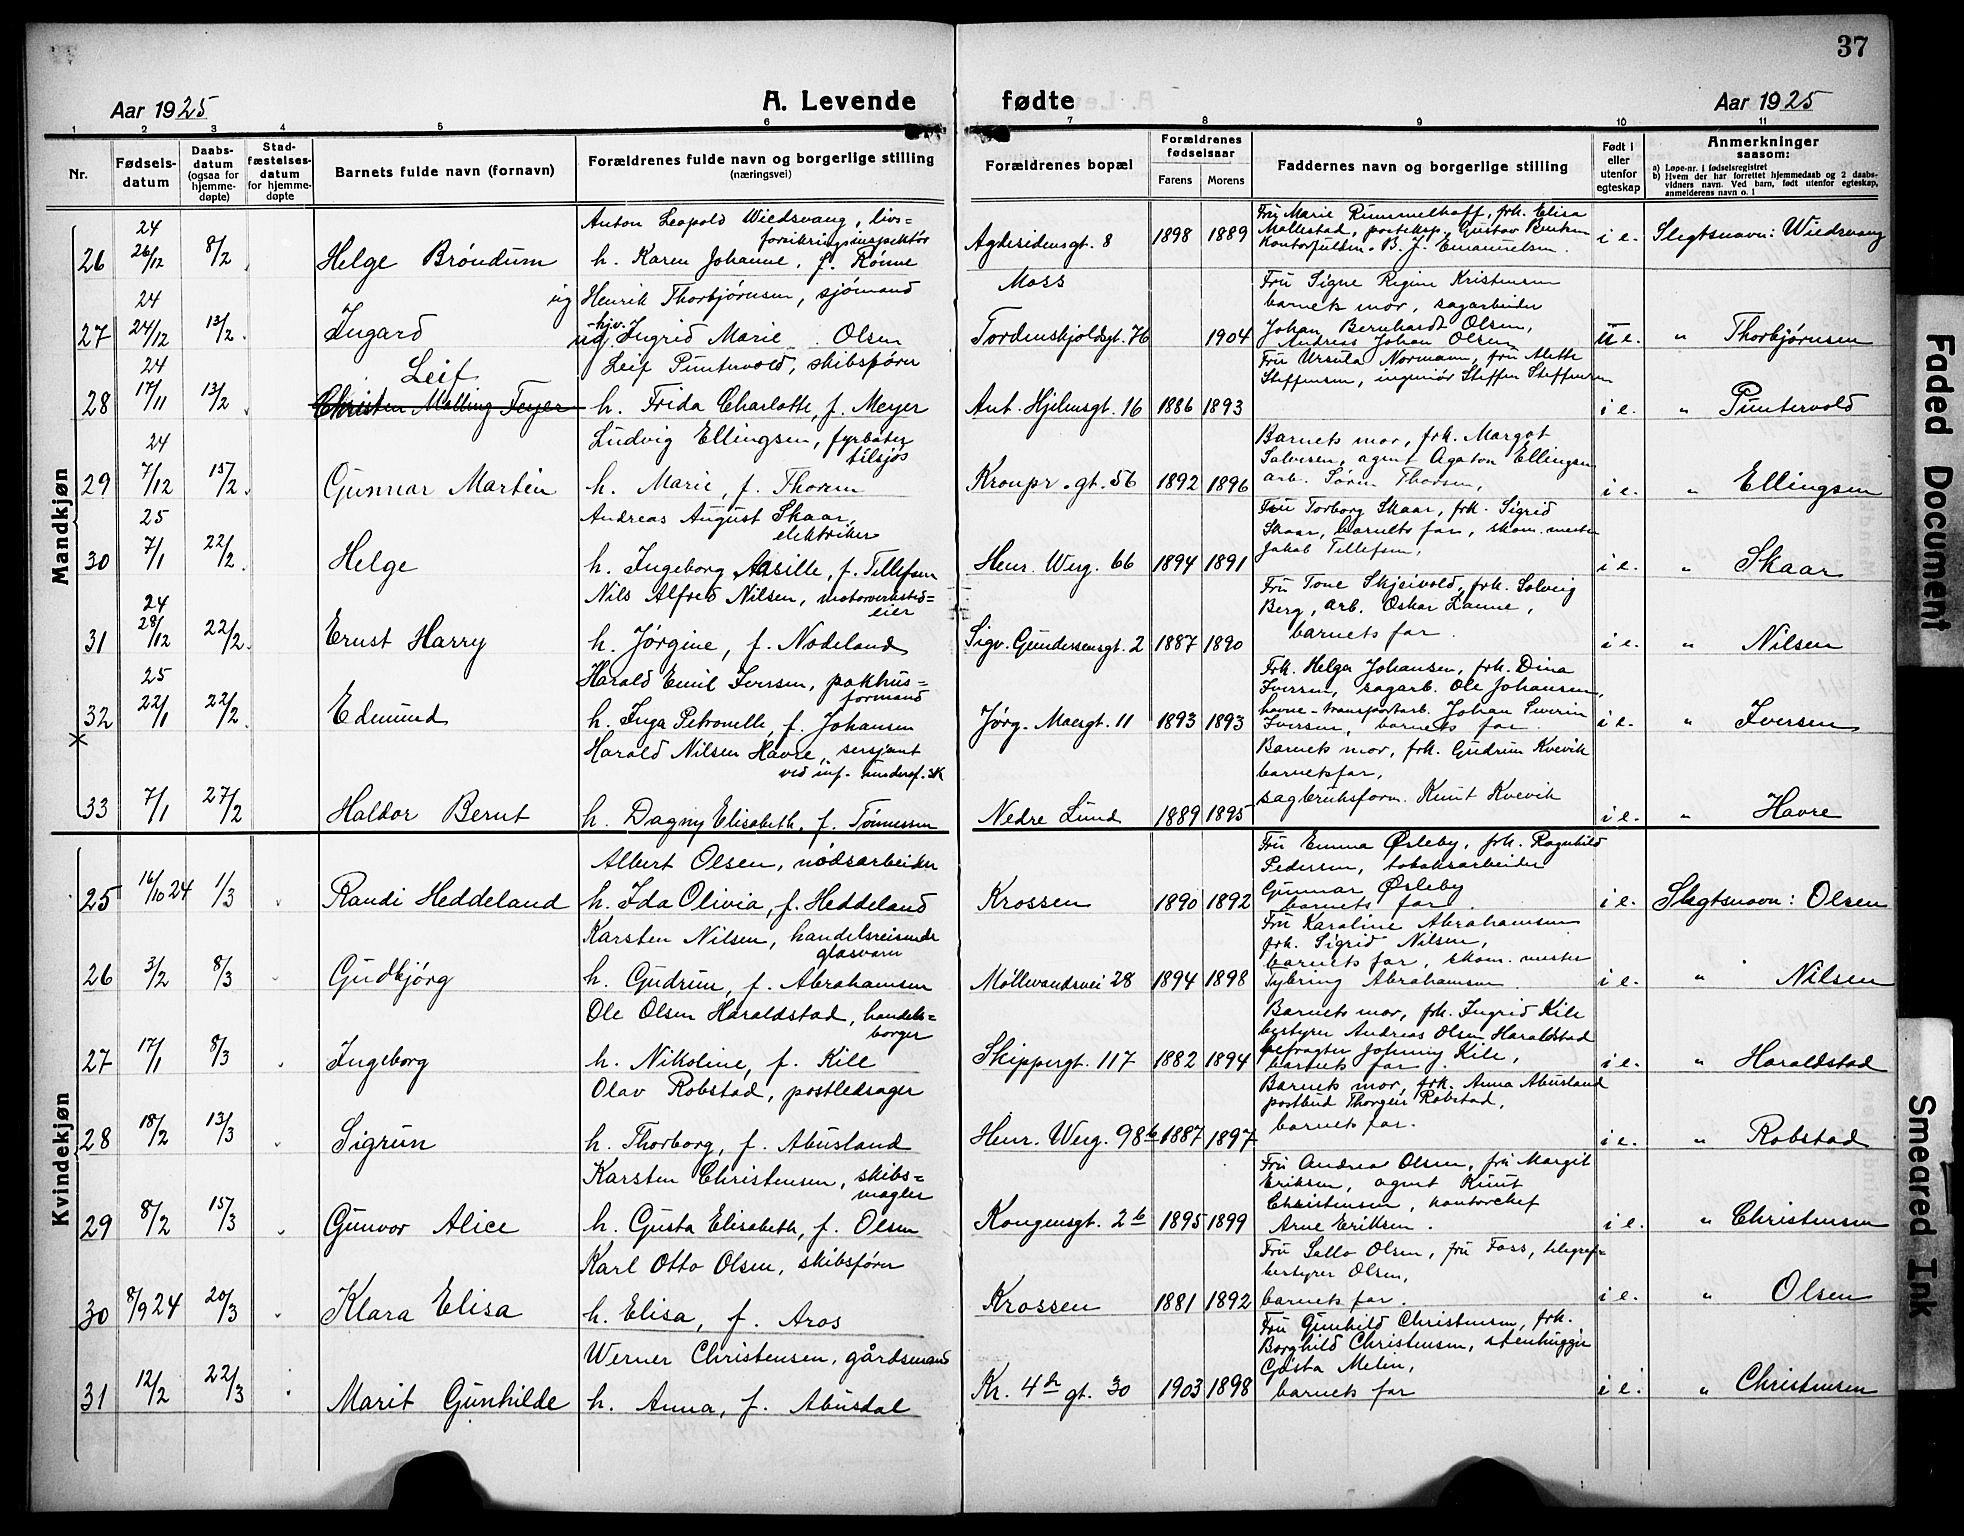 37
Aar 1925
A. Levende fødte
Aar 1925
1 2 3 4 5 6 7 8 9 10 11
Nr.
Fødsels-
datum
Daabs-
datum
(ogsaa for
hjemme-
døpte)
Stad-
fæstelses-
datum
for hjemme-
døpte
Barnets fulde navn (fornavn)
Forældrenes fulde navn og borgerlige stilling
(næringsvei)
Forældrenes bopæl
Forældrenes
fødselsaar
Farens Morens
Faddernes navn og borgerlige stilling
Født i
eller
utenfor
egteskap
Anmerkninger
saasom:
a) Løpe-nr. i fødselsregistret
b) Hvem der har forrettet hjemmedaab og 2 daabs-
vidners navn. Ved barn, født utenfor egteskap,
anmelderens navn o. l
Mandkjøn
26
24
26/12
8/2
Helge Bröndum
Anton Leopold Wiedsvang, livs=
forsikringsinspektör
h. Karen Johanne, f. Rönne
Agdesidensgt. 8
1898 1889
Fru Marie Rummelhoff, frk. Elisa
Mollestad, posteksp. Gustav
Kontorfuldm. B. J. Emanuelsen.
i e.
Slegtsnavn: Wiedsvang
27
24
24/12
13/2
Ingard
ug Henrik Thorbjörnsen, sjömand
Moss
ug. hjv. Ingrid Marie Olsen
Tordenskjoldsgt. 76
1904
Fru Signe Regine Kristensen
barnets mor, sagarbeider
Johan Bernhardt Olsen,
Andreas Johan Olsen
u e.
" Thorbjørnsen
28
24
17/11
13/2
Leif
Christen Malling Feyer
Leif Puntervold, skibsförer
h. Frida Charlotte, f. Meyer
Ant. Hjelmsgt. 16
1886 1893
Fru Ursula Normann, fru Mette
Steffensen, ingeniör Steffen Steffensen
i e.
" Puntervold
29
24
7/12
15/2
Gunnar Martin
Ludvig Ellingsen, fyrböter
tilsjøs
h. Marie, f. Thorsen
Kronpr. gt. 56
1892 1896
Barnets mor, frk. Margot
Salvesen, agent Agaton Ellingsen
arb. Sören Thorsen,
i e.
" Ellingsen
30
25
7/1
22/2
Helge
Andreas August Skaar,
elektriker
h. Ingeborg Asbille, f. Tellefsen
Henr. Werg. 66
1894 1891
Fru Torborg Skaar, frk. Sigrid
Skaar, barnets far, skom. mester
Jakob Tellefsen,
i e.
" Skaar
31
24
28/12
22/2
Ernst Harry
Nils Alfred Nilsen, motorverksted=
eier
h. Jörgine, f. Nodeland
Sigv. Gundersensgt. 2
1887 1890
Fru Tone Skjeivold, frk. Solveig
Berg, arb. Oskar Lanne,
barnets far.
i e.
" Nilsen
32
25
22/1
22/2
Edmund
Harald Emil Iversen, pakhus=
formand
h. Inga Petronelle, f. Johansen
Jörg. Moesgt. 11
1893 1893
Frk. Helga Johansen, frk. Dina
Iversen, sagarb. Ole Johansen,
havne-transportarb. Johan Severin
Iversen, barnets far.
i e.
" Iversen
×
33
7/1
27/2
Haldor Bernt
Harald Nilsen Havre, sersjant
ved inf. underof. sk
h. Dagny Elisabeth, f. Tönnessen
Nedre Lund
1889 1895
Barnets mor, frk. Gudrun Kvevik
barnets far,
sagbruksform. Knut Kvevik
i e.
" Havre
Kvindekjøn
25
16/10 24
1/3
Randi Heddeland
Albert Olsen, nødsarbeider
h. Ida Olivia, f. Heddeland
Krossen
1890 1892
Fru Emma Ørsleby, frk. Ragnhild
Pedersen, tobaksarbeider
Gunnar Ørsleby
barnets far.
i e.
Slegtsnavn: Olsen
26
3/2
8/3
Gudbjörg
Karsten Nilsen, handelsreisende
glasvarer
h. Gudrun, f. Abrahamsen
Møllevandsvei 28
1894 1898
Fru Karoline Abrahamsen
frk. Sigrid Nilsen,
barnets far, skom. mester
Tybring Abrahamsen.
i e.
" Nilsen
27
17/1
8/3
Ingeborg
Ole Olsen Haraldstad, handels=
borger
h. Nikoline, f. Kile
Skippergt. 117
1882 1894
Barnets mor, frk. Ingrid Kile
bestyrer Andreas Olsen Haraldstad
befragter Johnny Kile,
barnets far.
i e.
" Haraldstad
28
18/2
13/3
Sigrun
Olav Robstad, postledsager
h. Thorborg, f. Abusland
Henr. Werg. 98 b
1887 1897
Barnets mor, frk. Anna Abusland
postbud Thorgeir Robstad,
barnets far.
i e.
" Robstad
29
8/2
15/3
Gunvor Alice
Karsten Christensen, skibs=
megler
h. Gusta Elisabeth, f. Olsen
Kongensgt. 2 b
1895 1899
Fru Andrea Olsen, fru Margit
Eriksen, agent Knut
Christensen, kontorchef
Arne Eriksen.
i e.
" Christensen
30
8/9 24
20/3
Klara Elisa
Karl Otto Olsen, skibsförer
h. Elisa, f. Aros
Krossen
1881 1892
Fru Olsen, fru Foss, telegraf=
bestyrer Olsen,
barnets far.
i e.
" Olsen
31
12/2
22/3
Marit Gunhilde
Werner Christensen, gårdsmand
h. Anna, f. Abusdal
Kr. 4 de gt. 30
1903 1898
Fru Gunhild Christensen, frk.
Borghild Christensen, stenhugger
Gösta Melin,
barnets far
i e.
" Christensen
Faded Document
Smeared Ink